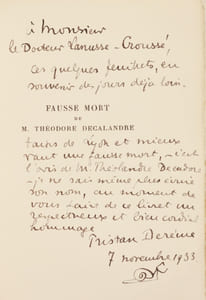 à Monsieur
le Docteur Larrusse-Croussé,
ces quelques feuillets, en
souvenir des jours déjà loin.
FAUSSE MORT
DE
M. THÉODORE DECALANDRE
et mieux
vaut une fausse mort, c'est
l'avis de M. Théodore
je ne sais même plus
son nom, au moment de
vous faire de ce livret un
respectueux et bien cordial
hommage
Tristan Derème
7 novembre 1933